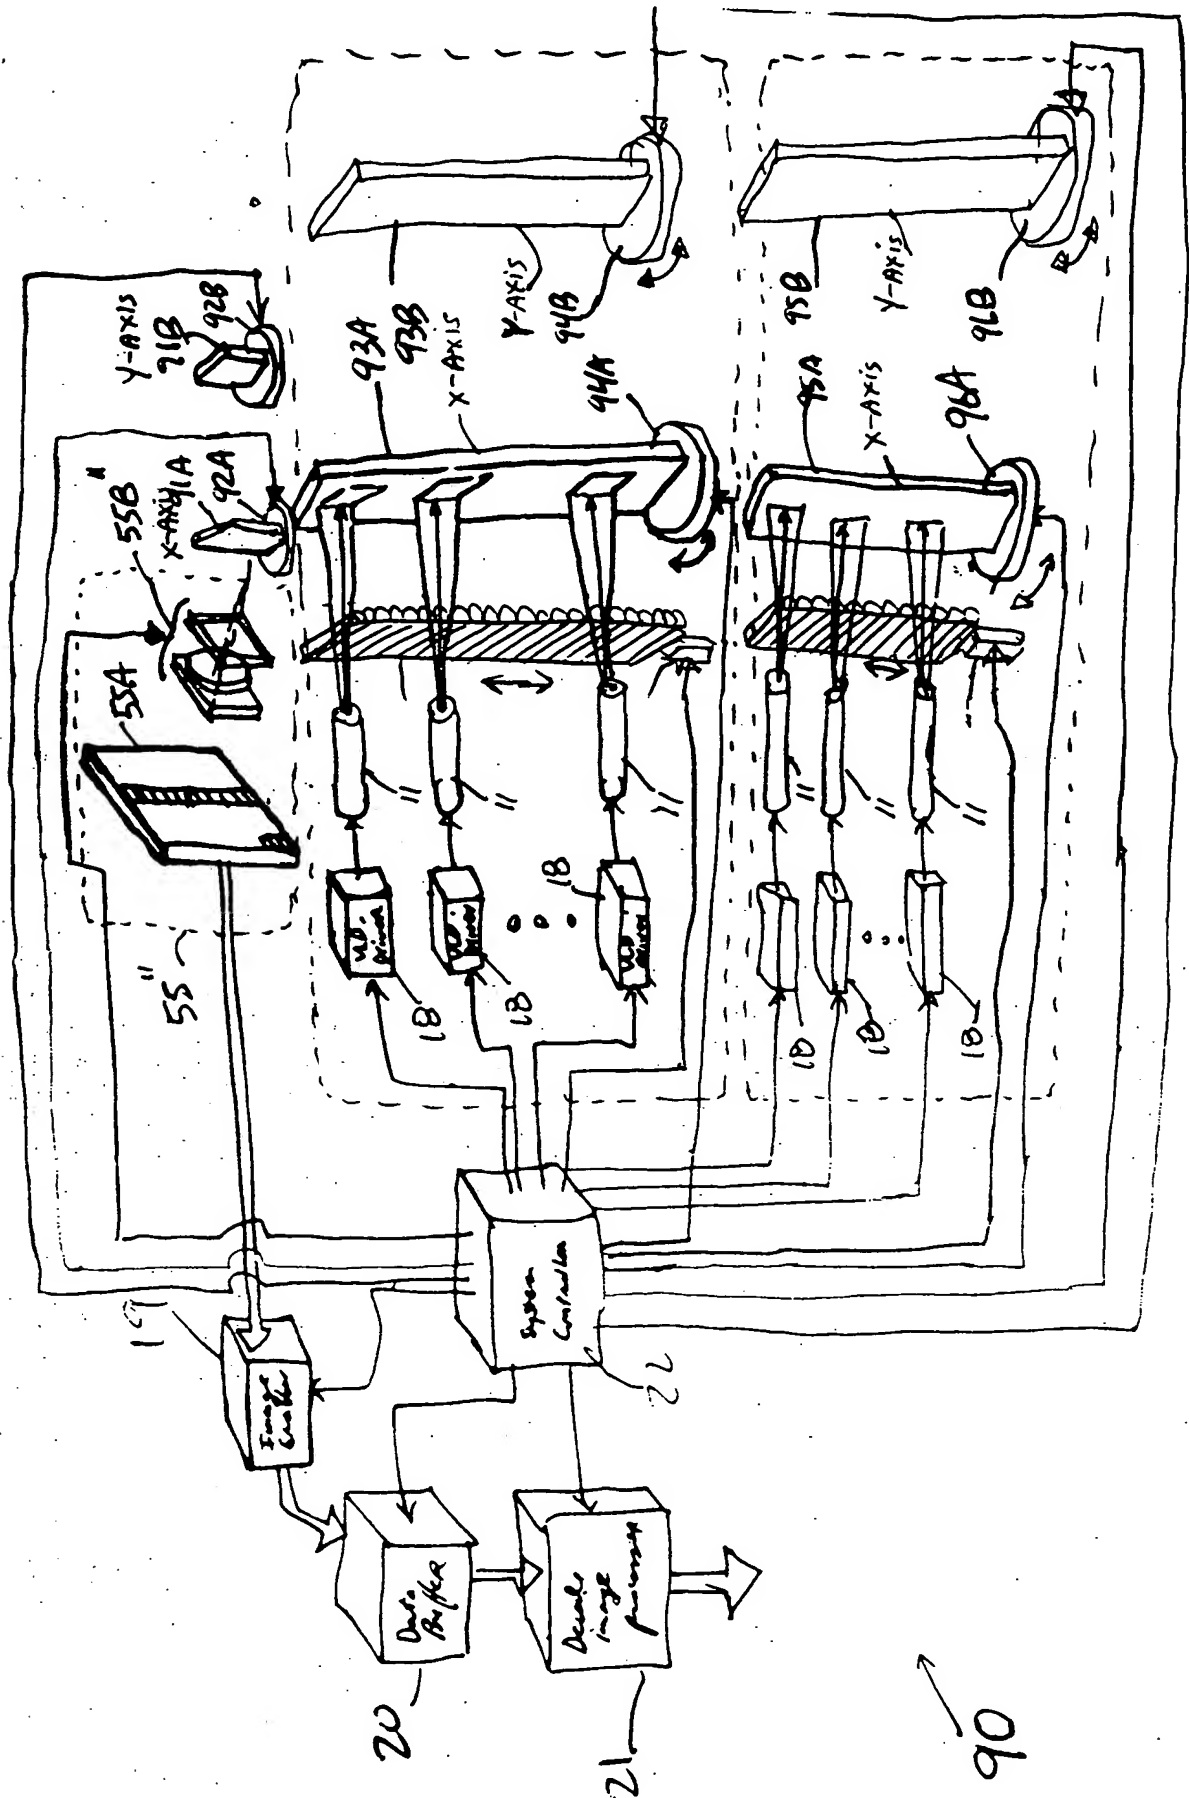 Y-AXIS
91B
92B
55B"
X-AXIS
91A
92A
55A
55"
93A
93B
X-AXIS
Y-AXIS
94B
94A
95B
Y-AXIS
96B
95A
X-AXIS
96A
11
11
11
11
11
11
VLD
Driver
18
VLD
Driver
18
18
VLD
Driver
18
18
18
19
Image
Grabber
System
Controller
22
Data
Buffer
20
Decode
image
processor
21
90